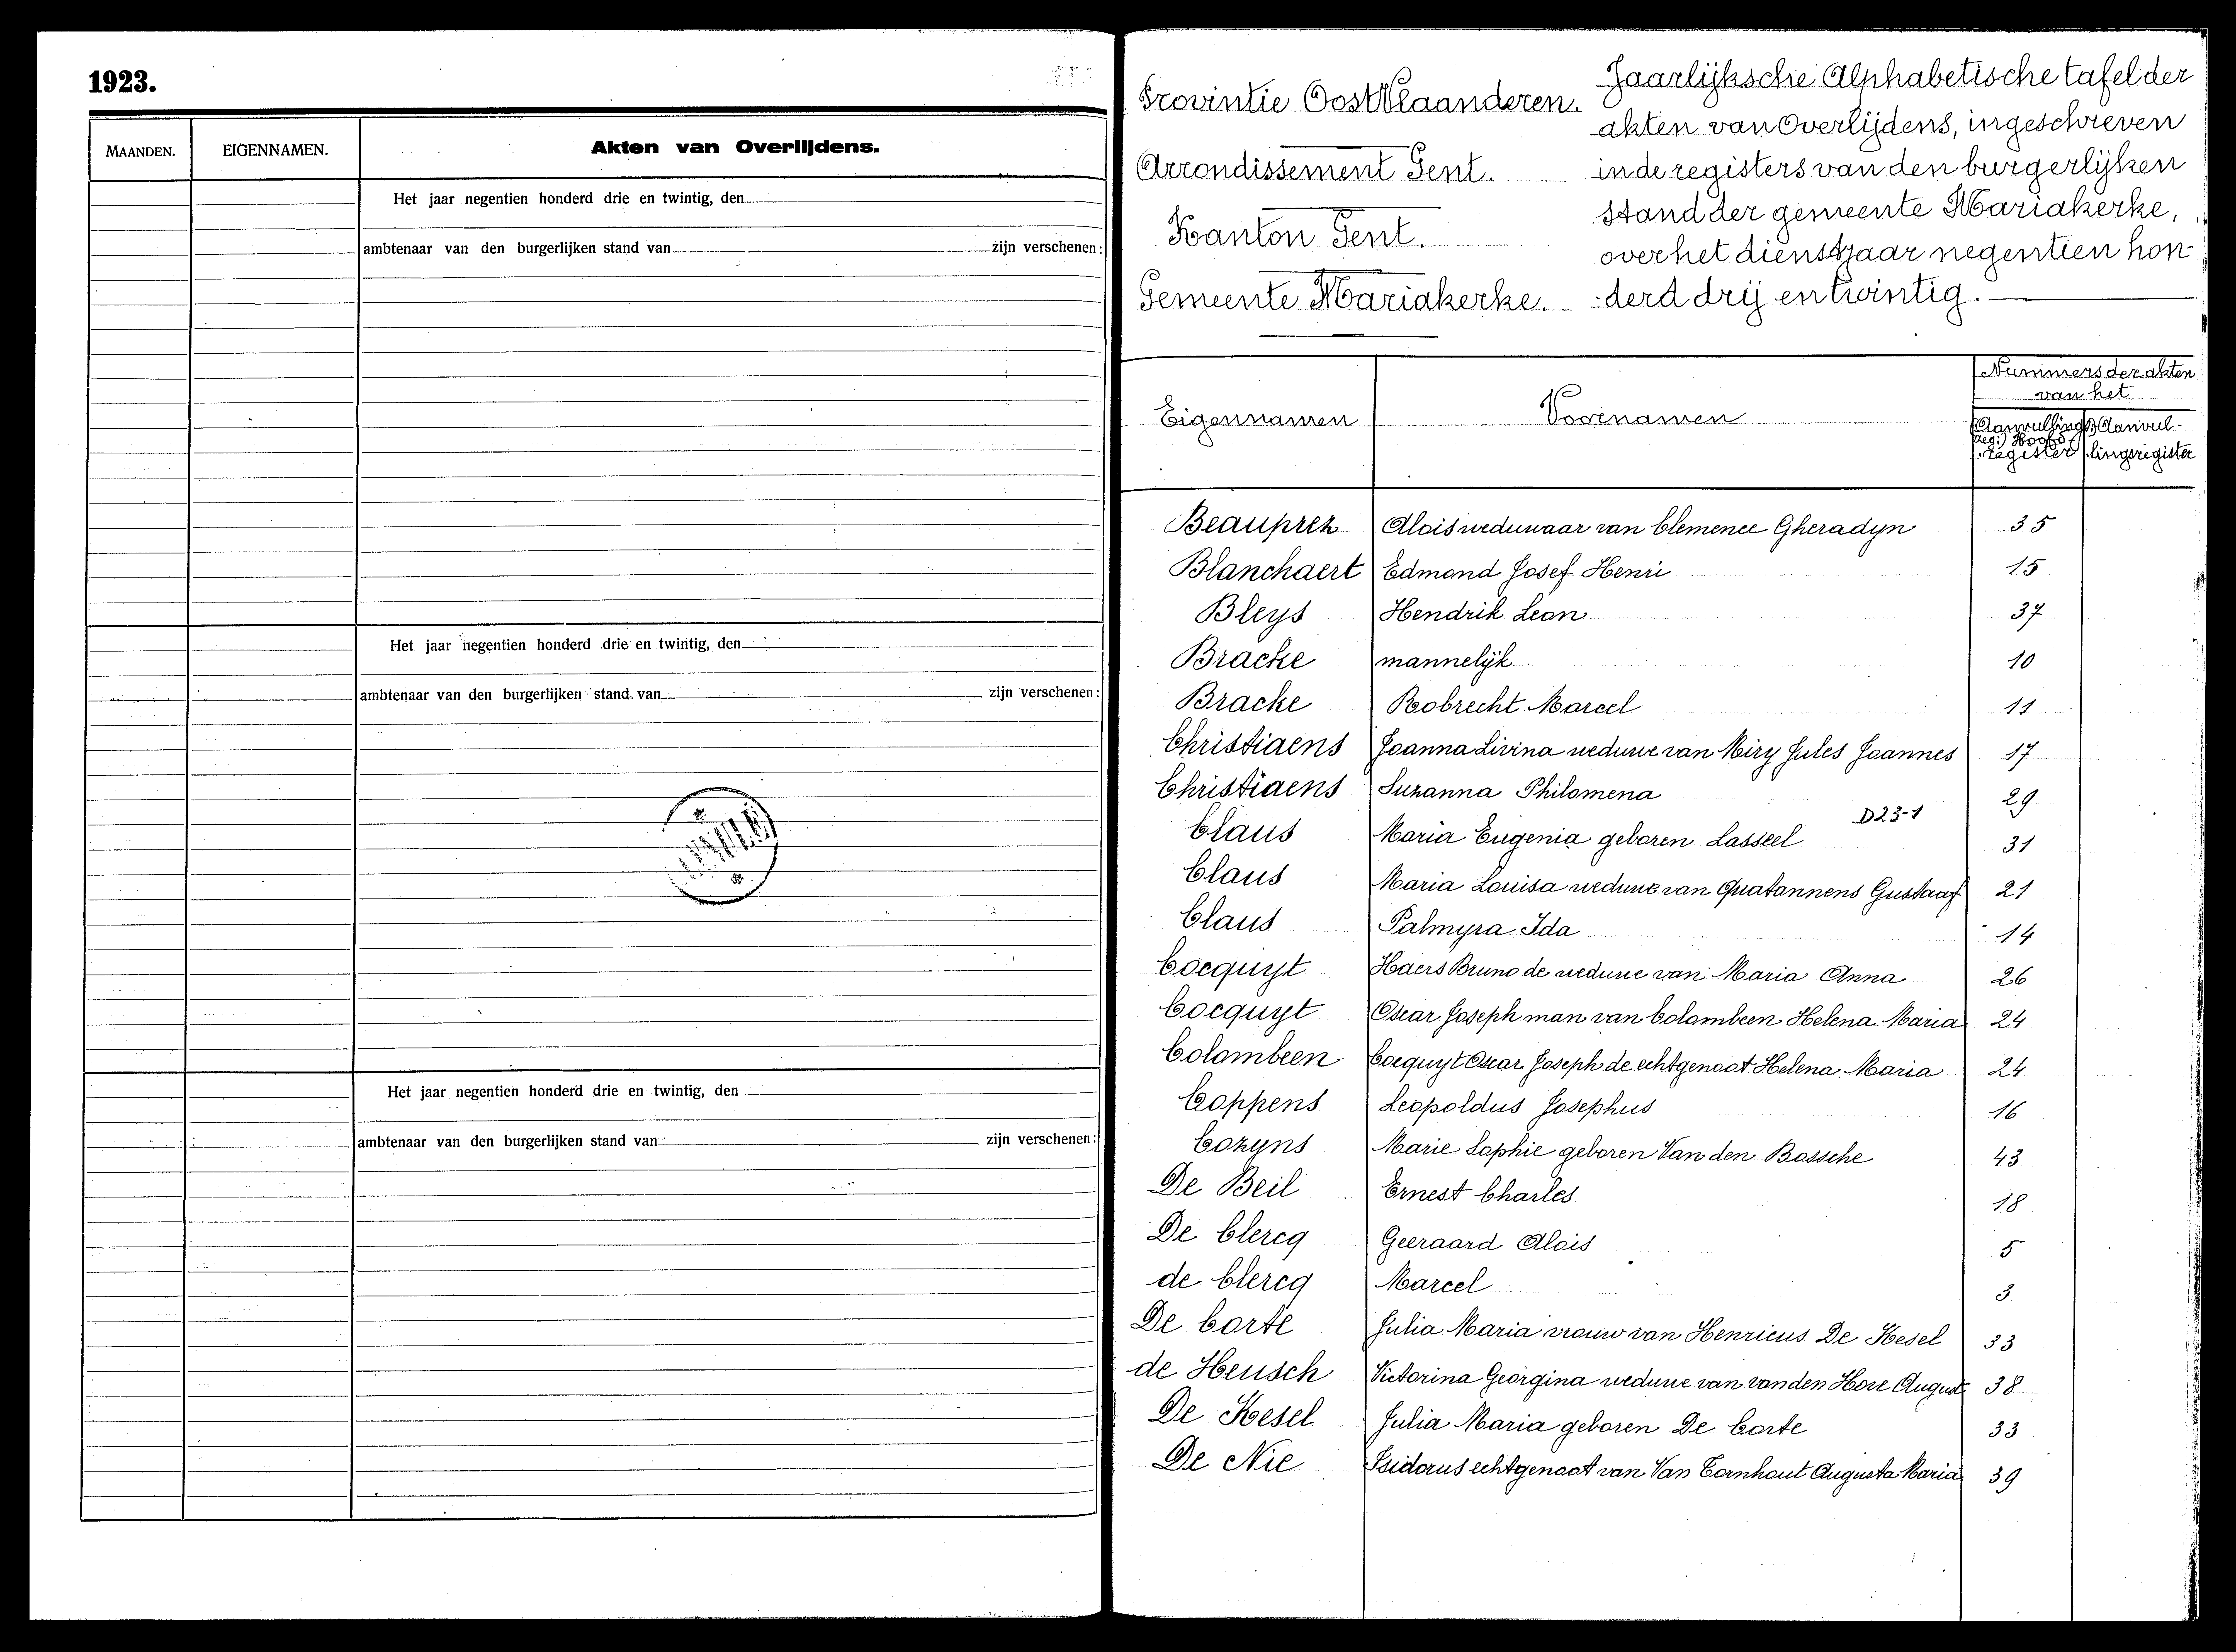 1923.
MAANDEN. EIGENNAMEN. Akten van Overlijdens.
Het jaar negentien honderd drie en twintig, den
ambtenaar van den burgerlijken stand van zijn verschenen:
Het jaar negentien honderd drie en twintig, den
ambtenaar van den burgerlijken stand van zijn verschenen:
Het jaar negentien honderd drie en twintig, den
ambtenaar van den burgerlijken stand van zijn verschenen:
Provintie OostVlaanderen.
Arrondissement Gent.
Kanton Gent.
Gemeente Mariakerke.
Jaarlijksche Alphabetische tafel der
akten van Overlijdens, ingeschreven
in de registers van den burgerlijken
stand der gemeente Mariakerke,
over het dienstjaar negentien hon-
derd drij en twintig.
Eigennamen Voornamen Nummers der akten
van het
Hoofd-
register
Aanvul-
lingsregister
Beauprez Alois weduwaar van Clemence Gheradyn 35
Blanchaert Edmond Josef Henri 15
Bleys Hendrik Leon 37
Bracke mannelijk 10
Bracke Robrecht Marcel 11
Christiaens Joanna Livina weduwe van Miry Jules Joannes 17
Christiaens Suzanna Philomena 29
D23-1
Claus Maria Eugenia geboren Lasseel 31
Claus Maria Louisa weduwe van Quatannens Gustaaf 21
Claus Palmyra Ida 14
Cocquyt Haers Bruno de weduwe van Maria Anna 26
Cocquyt Oscar Joseph man van Colombeen Helena Maria 24
Colombeen Cocquyt Oscar Joseph de echtgenoot Helena Maria 24
Coppens Leopoldus Josephus 16
Cozyns Marie Sophie geboren Van den Bossche 43
De Beil Ernest Charles 18
De Clercq Geeraard Alois 5
de Clercq Marcel 3
De Corte Julia Maria vrouw van Henricus De Kesel 33
de Heusch Victorina Georgina weduwe van van den Hove August 38
De Kesel Julia Maria geboren De Corte 33
De Nie Isidorus echtgenoot van Van Cornhout Augusta Maria 39